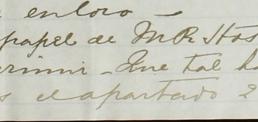 en loro
papel de M R Hos
rimir - Que tal h
s el apartado 2